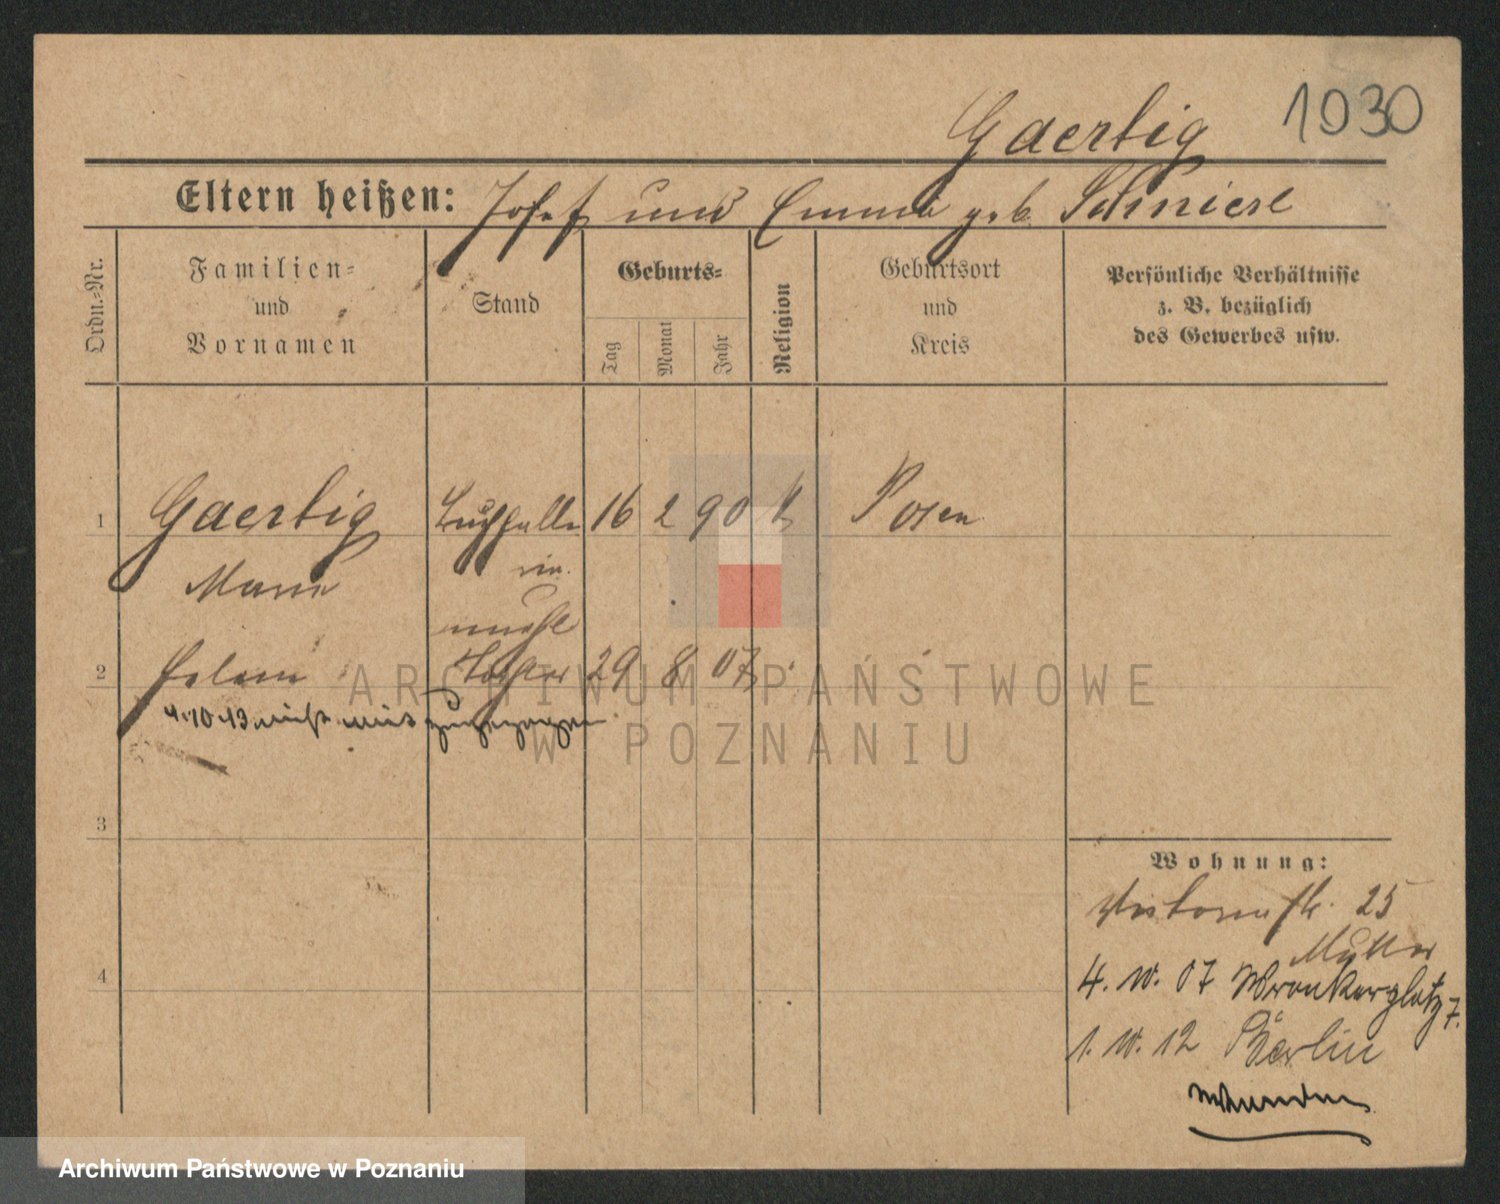 Gaertig 1030
Eltern heißen: Josef und Emma geb. Schmiese
Ordn.-Nr.
Familien-
und
Vornamen
Stand
Geburts-
Tag
Monat
Jahr
Religion
Geburtsort
und
Kreis
Persönliche Verhältnisse
z. B. bezüglich
des Gewerbes usw.
1 Gaertig 16 2 90 k Posen
Marie
rin.
unehl
2 Tochter 29 8 07
4.10.13 nicht mit zugezogen
3
4
Wohnung:
Victoriastr. 25
Mutter
4. 10. 07 Wronkerplatz 7.
1. 10. 12 Berlin
ARCHIWUM PAŃSTWOWE
W POZNANIU
Archiwum Państwowe w Poznaniu